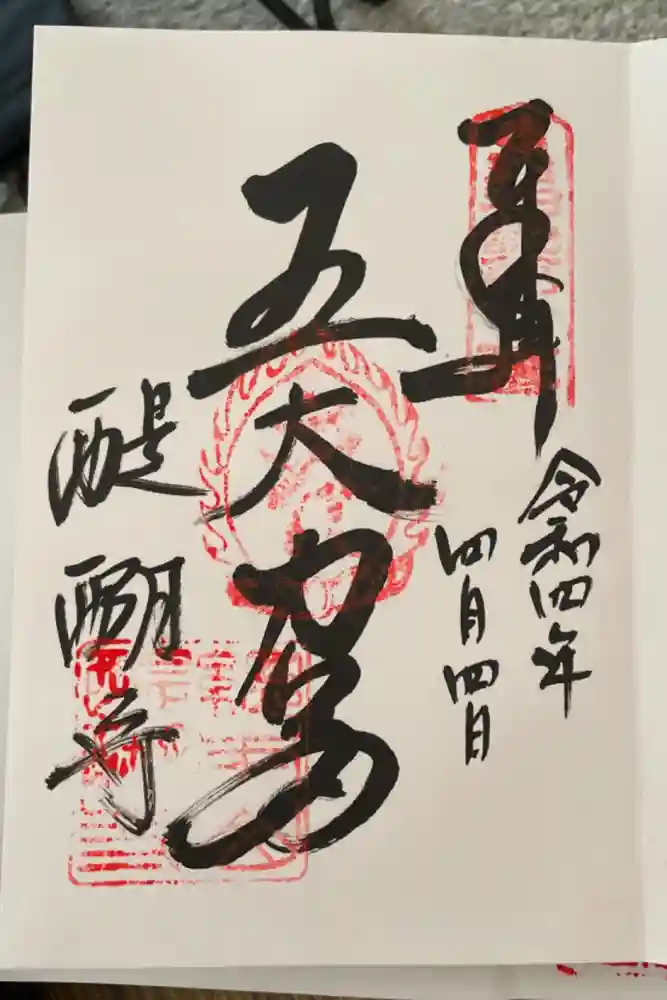 奉拝
令和四年
四月四日
五大力
醍醐寺